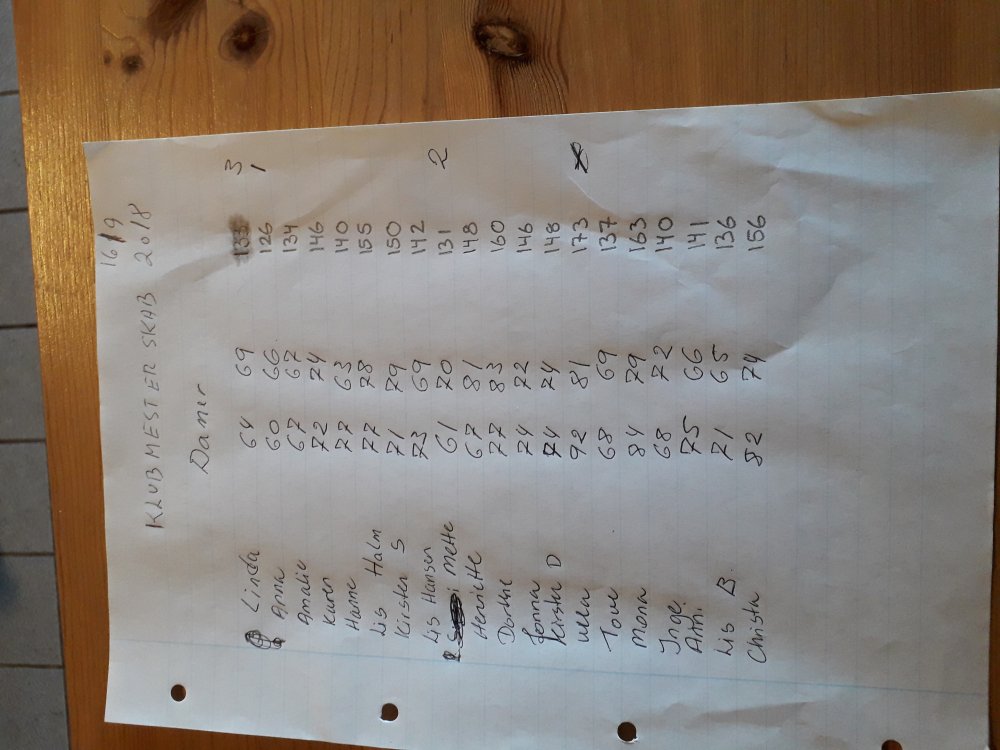 16/9
KLUBMESTERSKAB 2018
Damer
Linda 64 69 133 3
Anna 60 66 126 1
Amalie 67 67 134
Karen 72 74 146
Hanne 77 63 140
Lis Holm 77 78 155
Kirsten S 71 79 150
Lis Hansen 73 69 142
Mette 61 70 131 2
Henriette 67 81 148
Dorthe 77 83 160
Jonna 74 72 146
Kirsten D 74 74 148
Ulla 92 81 173
Tove 68 69 137
Mona 84 79 163
Inge 68 72 140
Ami 75 66 141
Lis B 71 65 136
Christa 82 74 156